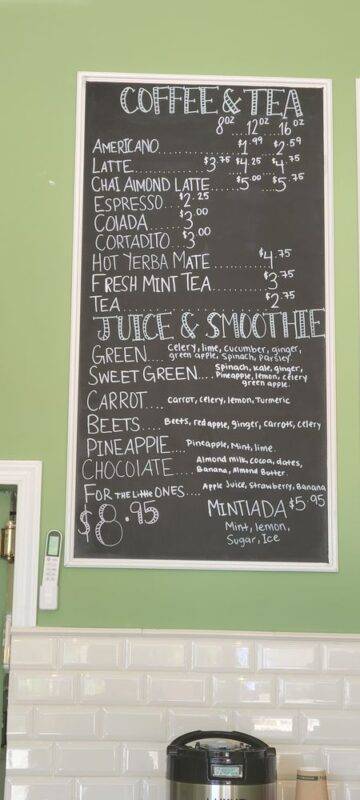 COFFEE & TEA
8oz....12oz..16oz
AMERICANO................$1.99 $2.59
LATTE................$3.75 $4.25 $4.75
CHAI AlMOND LATTE.....$5.00 $5.75
ESPRESSO...$2.25
COlADA.....$3.00
CORTADITO..$3.00
HOT YERBA MATE..........$4.75
FRESH MINT TEA..........$3.75
TEA............................$2.75
JUICE & SMOOTHIE
GREEN.... Celery, lime, cucumber, ginger,
green apple, Spinach, parsley.
SWEET GREEN.... Spinach, kale, ginger,
Pineapple, lemon, celery
green apple.
CARROT.... carrot, celery, lemon, Turmeric
BEETS.... Beets, red apple, ginger, carrots, celery
PINEAPPlE.... Pineapple, Mint, lime.
CHOCOLATE.... Almond milk, cocoa, dates,
Banana, Almond Butter.
FOR THE Little ONES.... Apple Juice, Strawberry, Banana
$8.95
MINTIADA $5.95
Mint, lemon,
Sugar, Ice